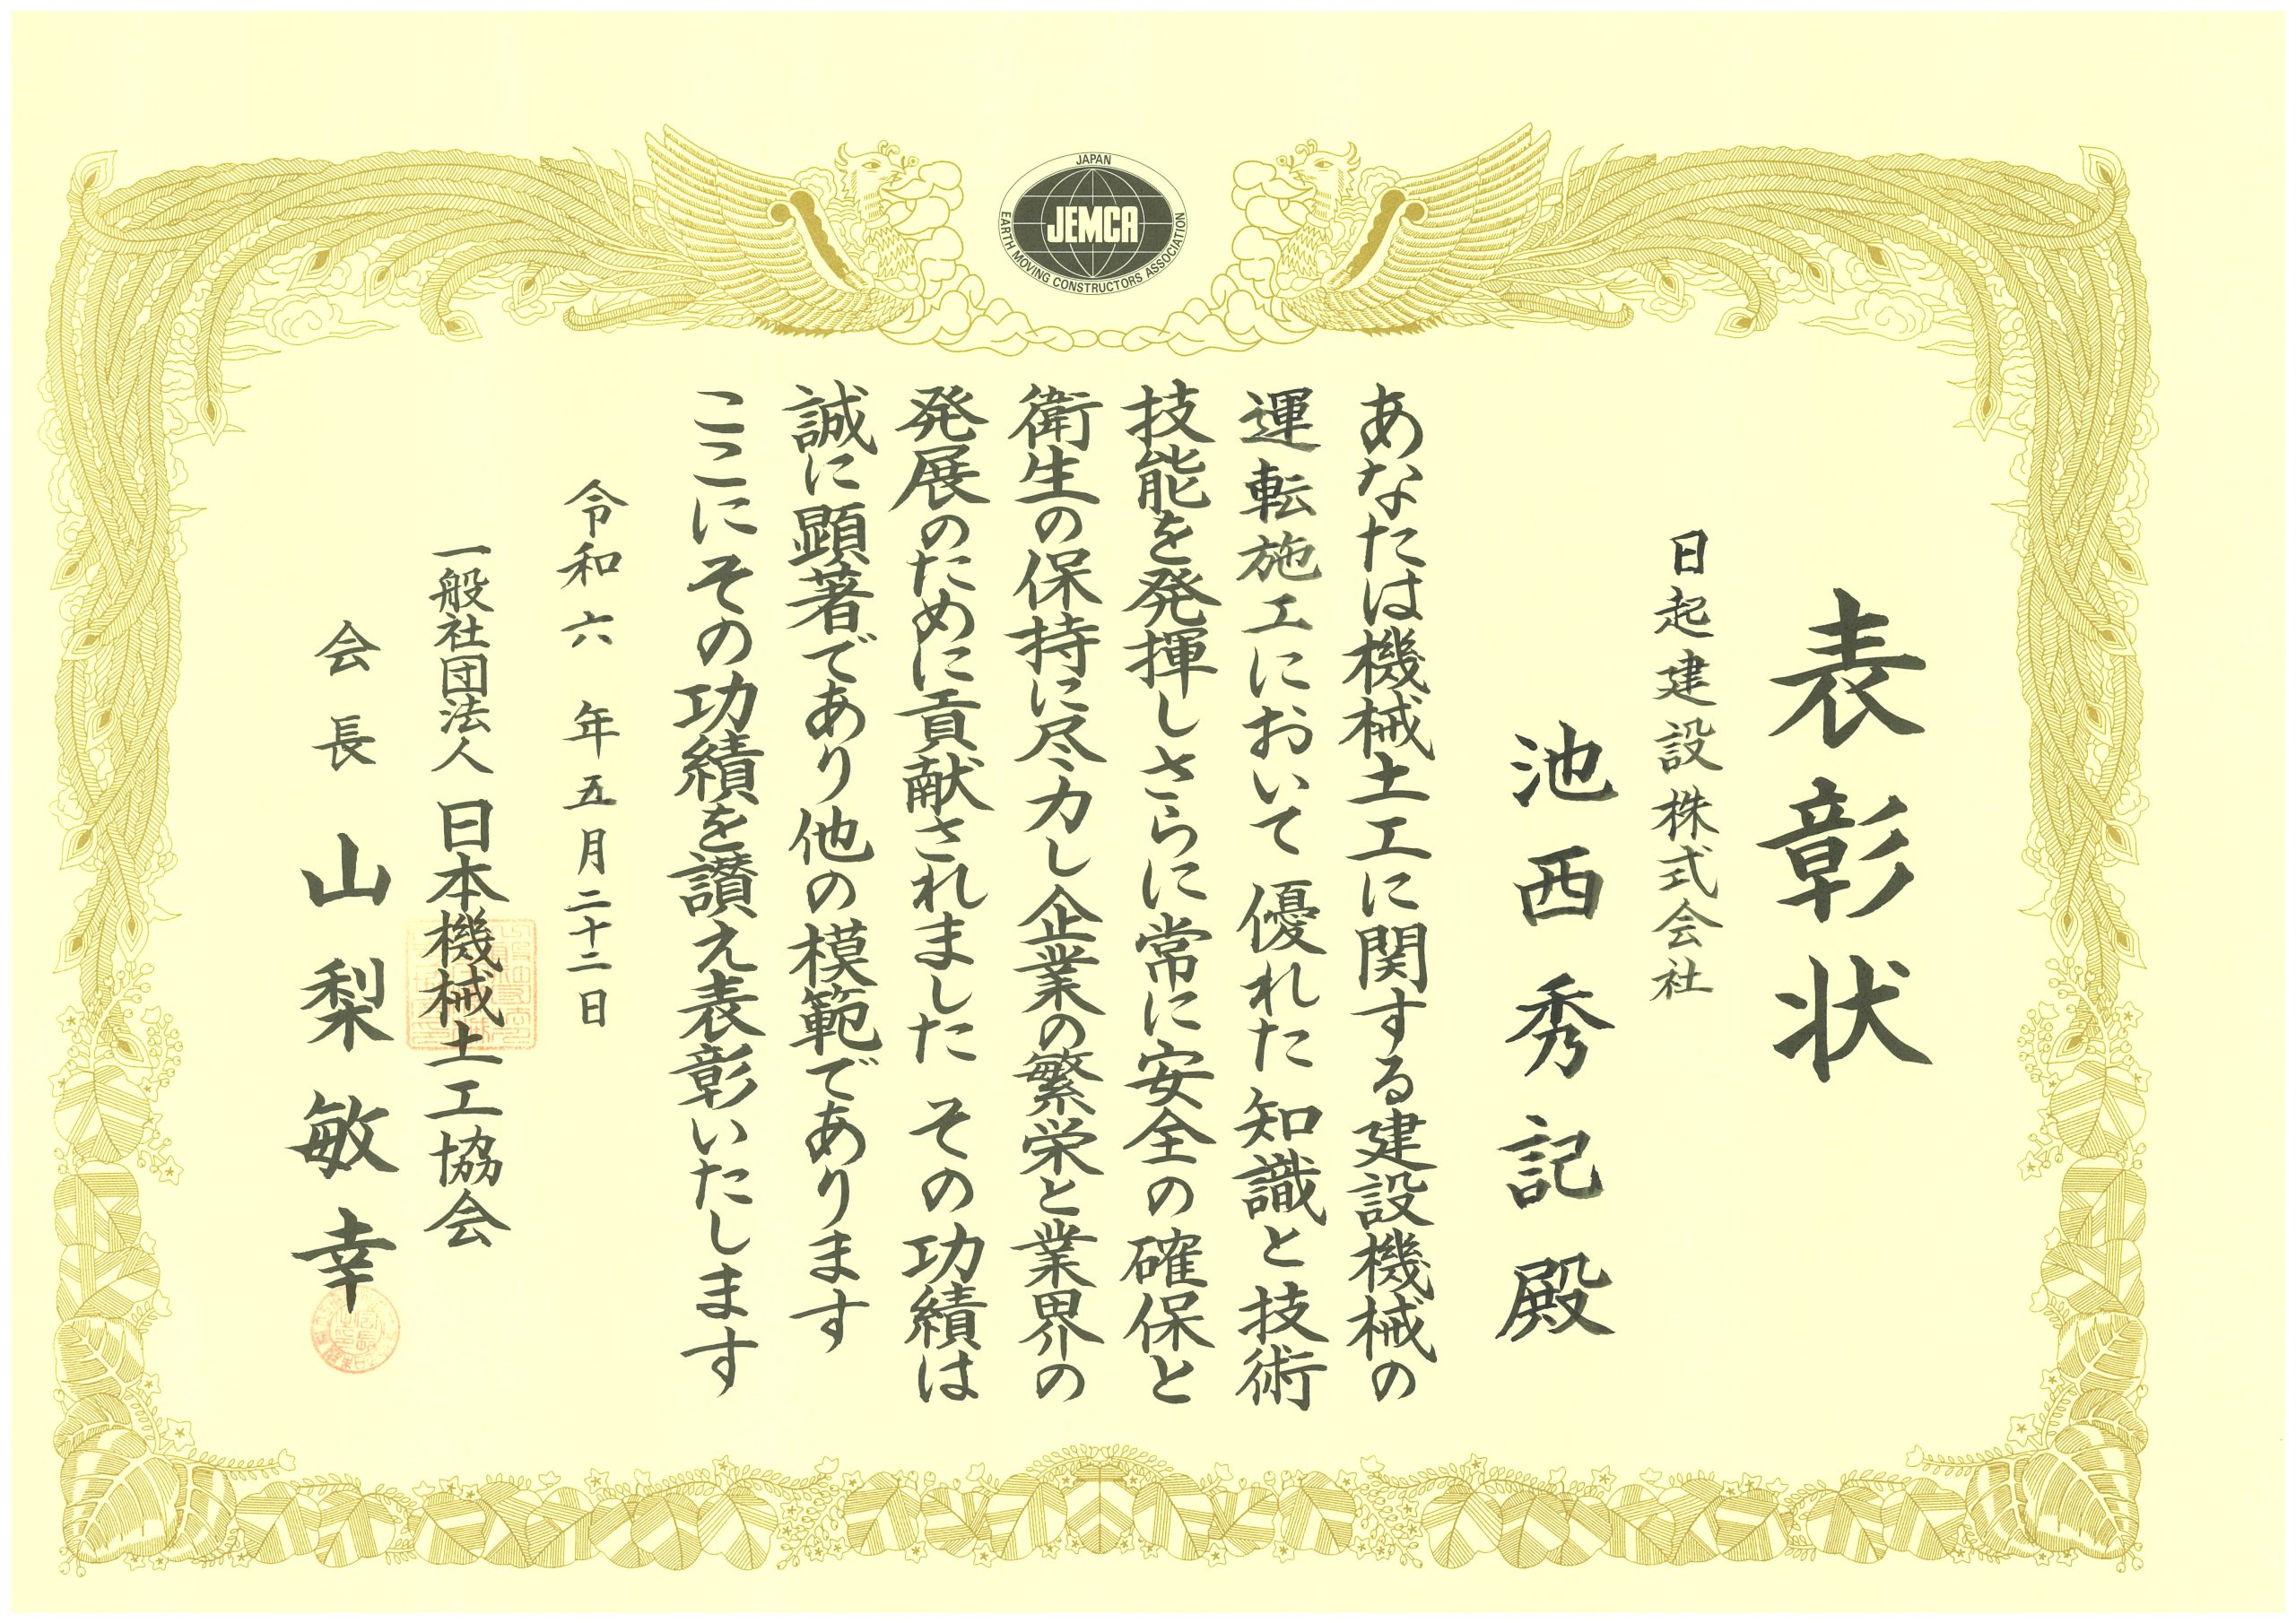 JAPAN
JEMCA
EARTH MOVING CONSTRUCTORS ASSOCIATION
表彰状
日起建設株式会社
池西秀記殿
あなたは機械土工に関する建設機械の
運転施工において優れた知識と技術
技能を発揮しさらに常に安全の確保と
衛生の保持に尽力し企業の繁栄と業界の
発展のために貢献されました その功績は
誠に顕著であり他の模範であります
ここにその功績を讃え表彰いたします
令和六年五月二十二日
一般社団法人 日本機械土工協会
会長 山梨敏幸